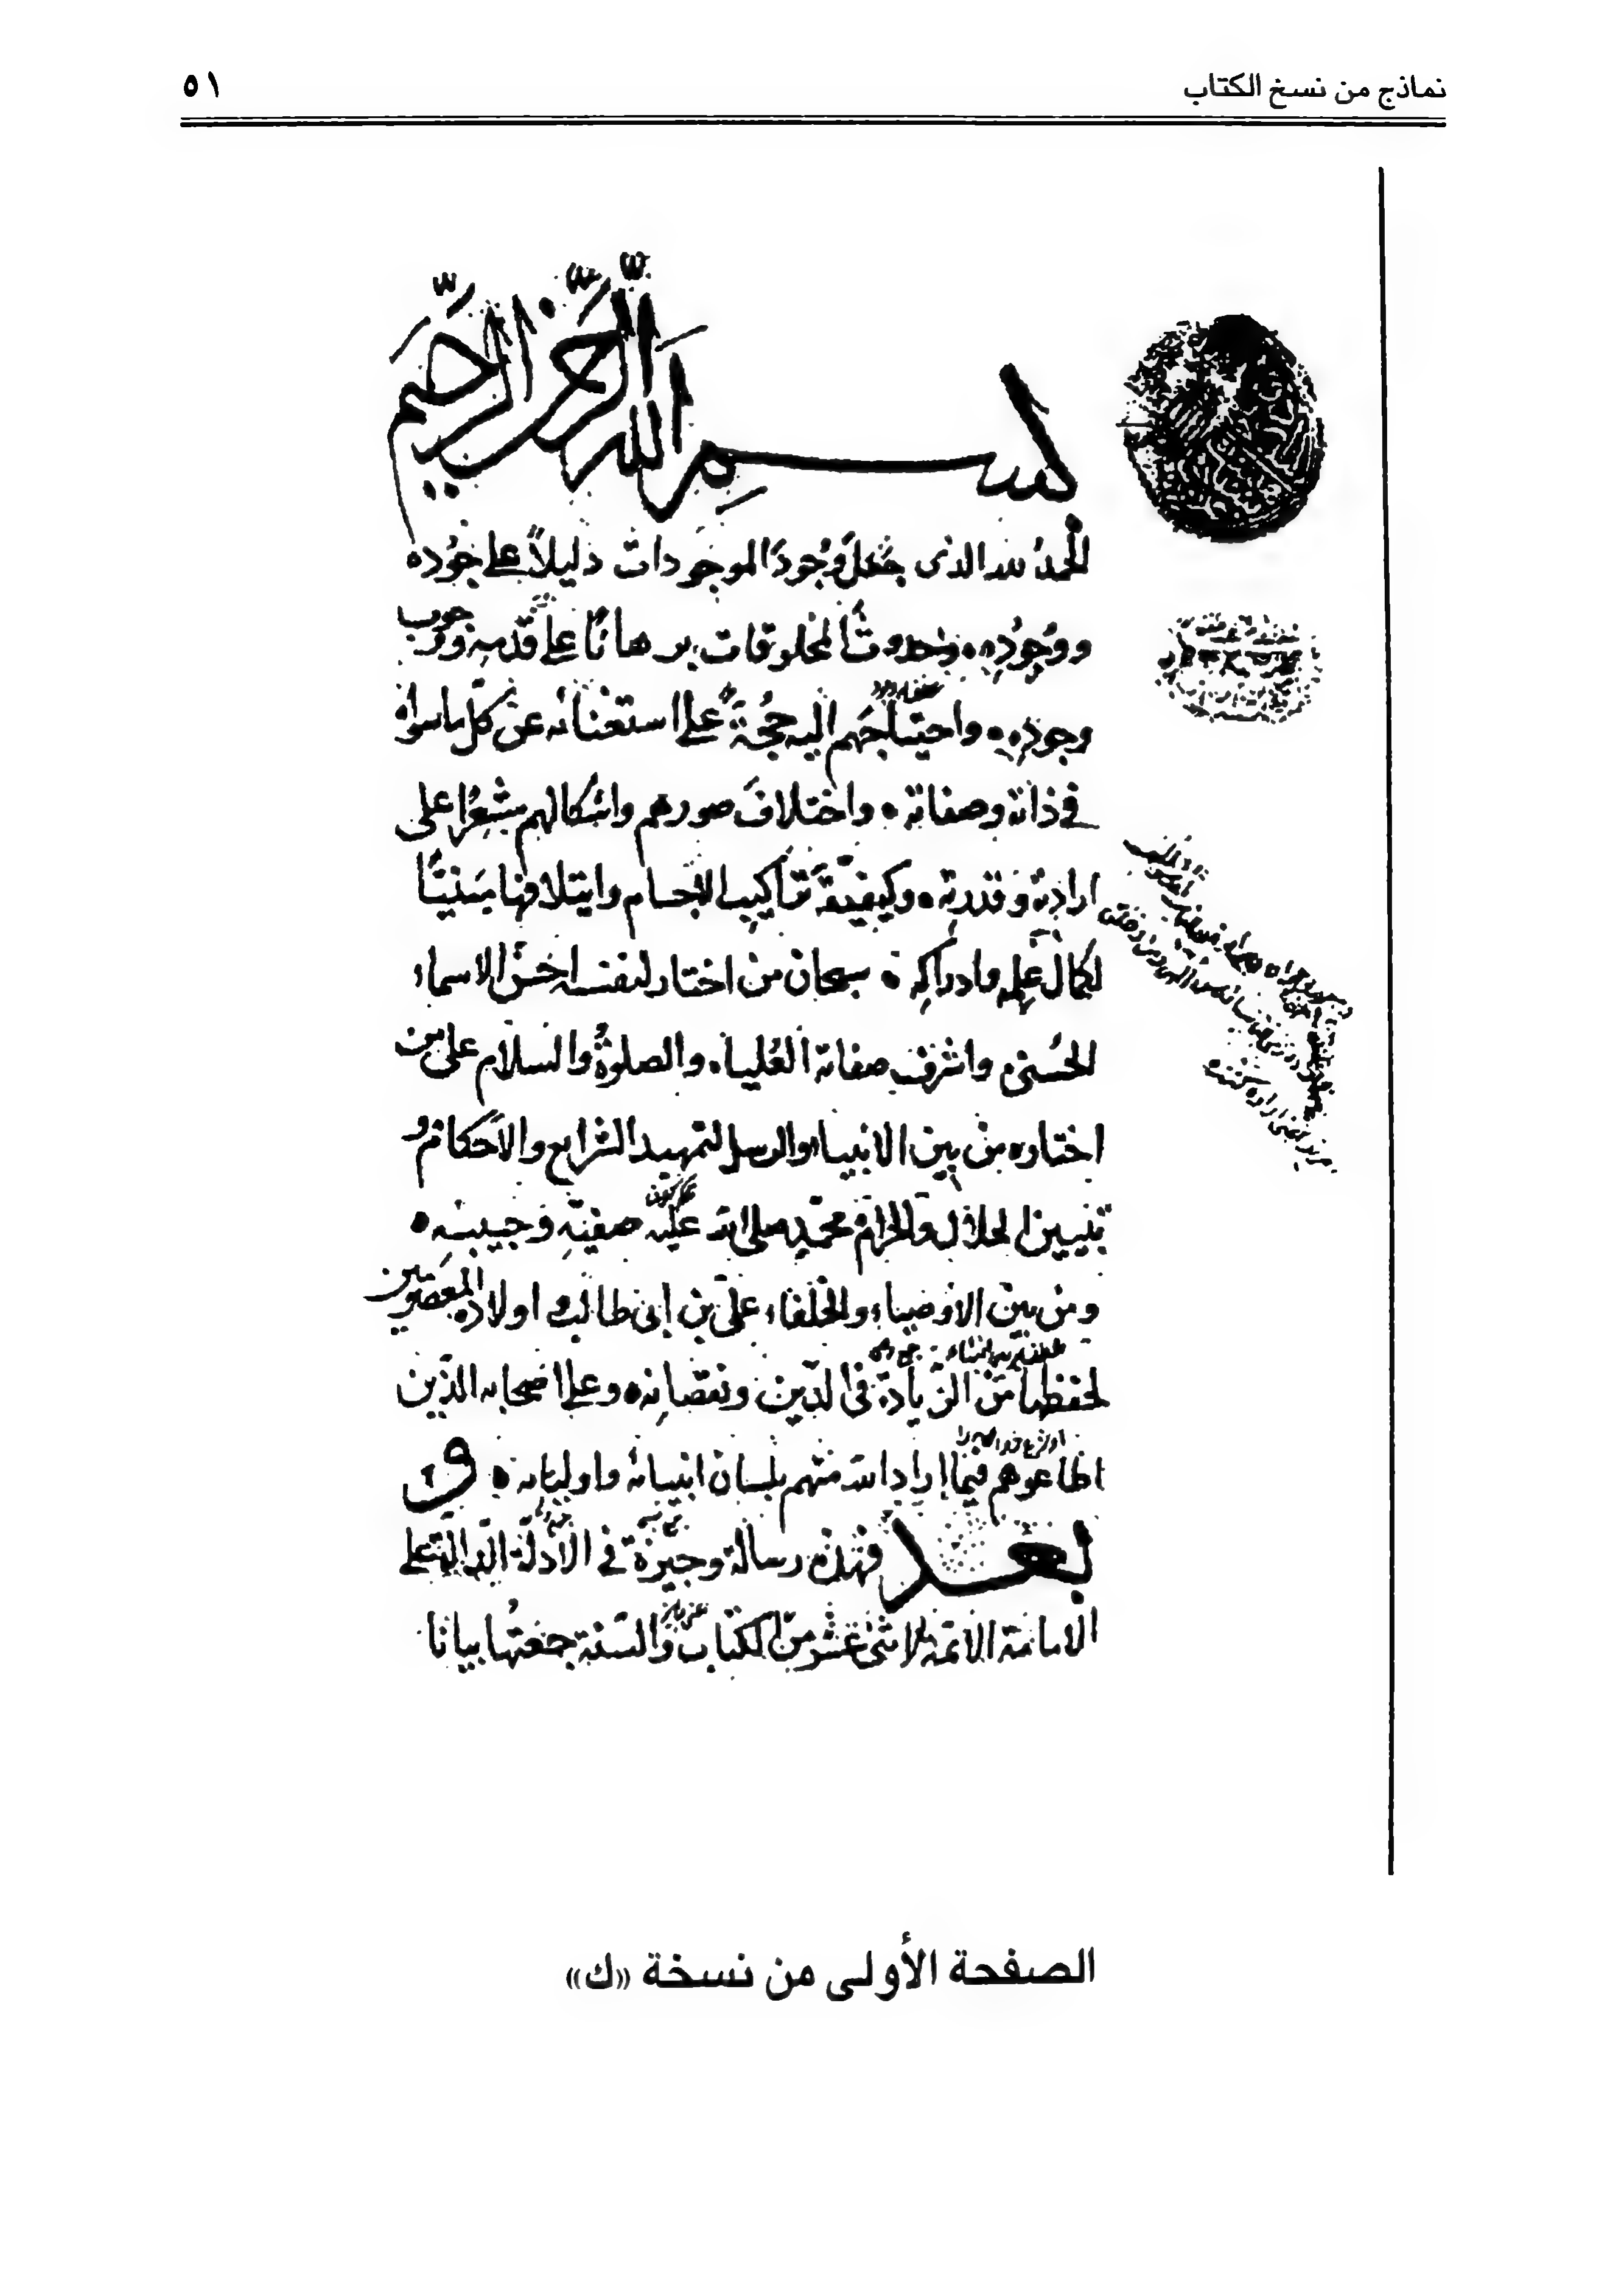 نماذج من نسخ الكتاب
٥١
بسم الله الرحمن الرحيم
الحمدُ لله الذى جَعَلَ وُجُودَ الموجودات دليلاً على جُوده
ووُجُودِه وحدوثَ المخلوقات برهانًا على قدمه ووجوب
وجوده واحتياجَهم اليه حُجّةً على استغنائه عن كلّ ما سواه
فى ذاته وصفاته واختلافَ صورهم واشكالهم مشعِرًا على
ارادته وقدرته وكيفيّةَ تراكيب الاجسام وايتلافها مبنيًا
لكمال علمه وادراكه سبحان من اختار لنفسه احسن الاسماء
الحُسنى واشرف صفاته العُلياء والصلوةُ والسلام على من
اختاره من بين الانبياء والرسل لتمهيد الشرايع والاحكام و
تبيين الحلال والحرام محمّدٍ صلى الله عليه صفيّهِ وحبيبه
ومن بين الاوصياء والخلفاء على بن ابى طالب واولاده المعصومين
لحفظها من الزيادة فى الدّين ونقصانه وعلى اصحابه الذّين
اطاعوهم فيما اراد الله منهم بلسان انبيائه واوليائه و
بعد فهذه رسالة وجيزة فى الادلّة الدالّة على
الامامة الائمّة الاثنى عشر من الكتاب والسّنة جمعتُها بيانا
الصفحة الأولى من نسخة «ك»